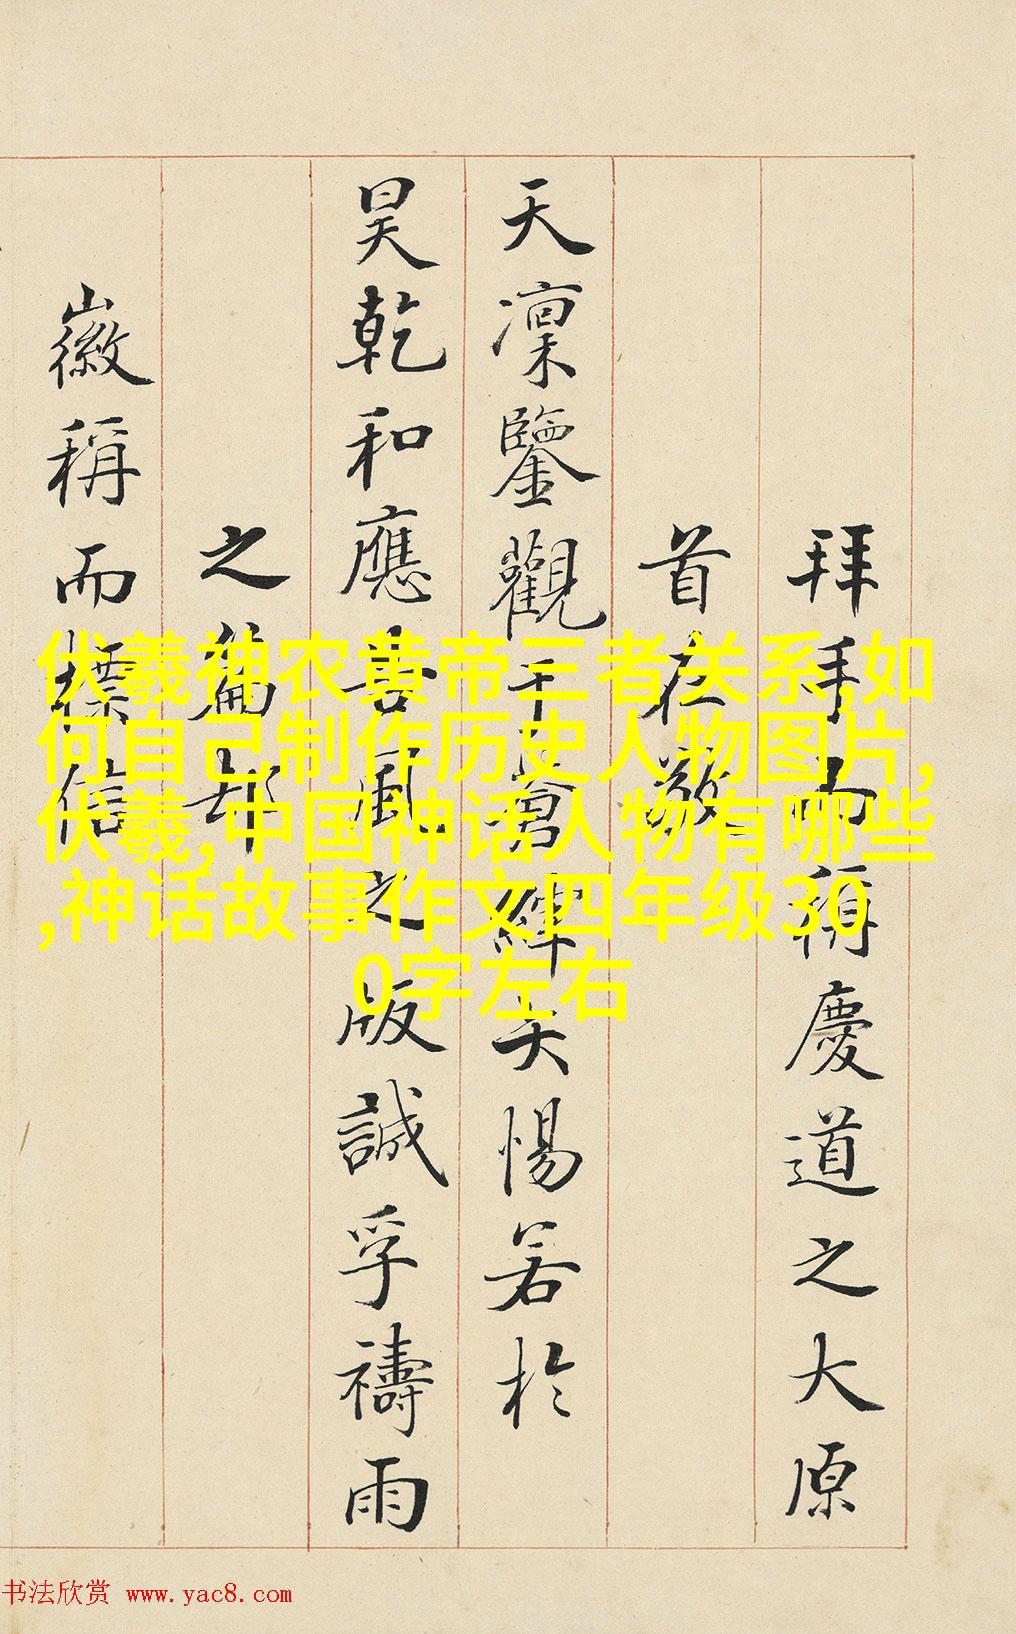 拜手而稱慶道之大原
首在敬
天凜鑒觀于蒼緯大惕若於
昊乾和應占風之版誠孚禱雨
之篇却
徽稱而標信
伏羲神农黄帝三者关系,如
何自己制作历史人物图片,
伏羲,中国神话人物有哪些
,神话故事作文四年级30
0字左右
书法欣赏 www.yac8.com